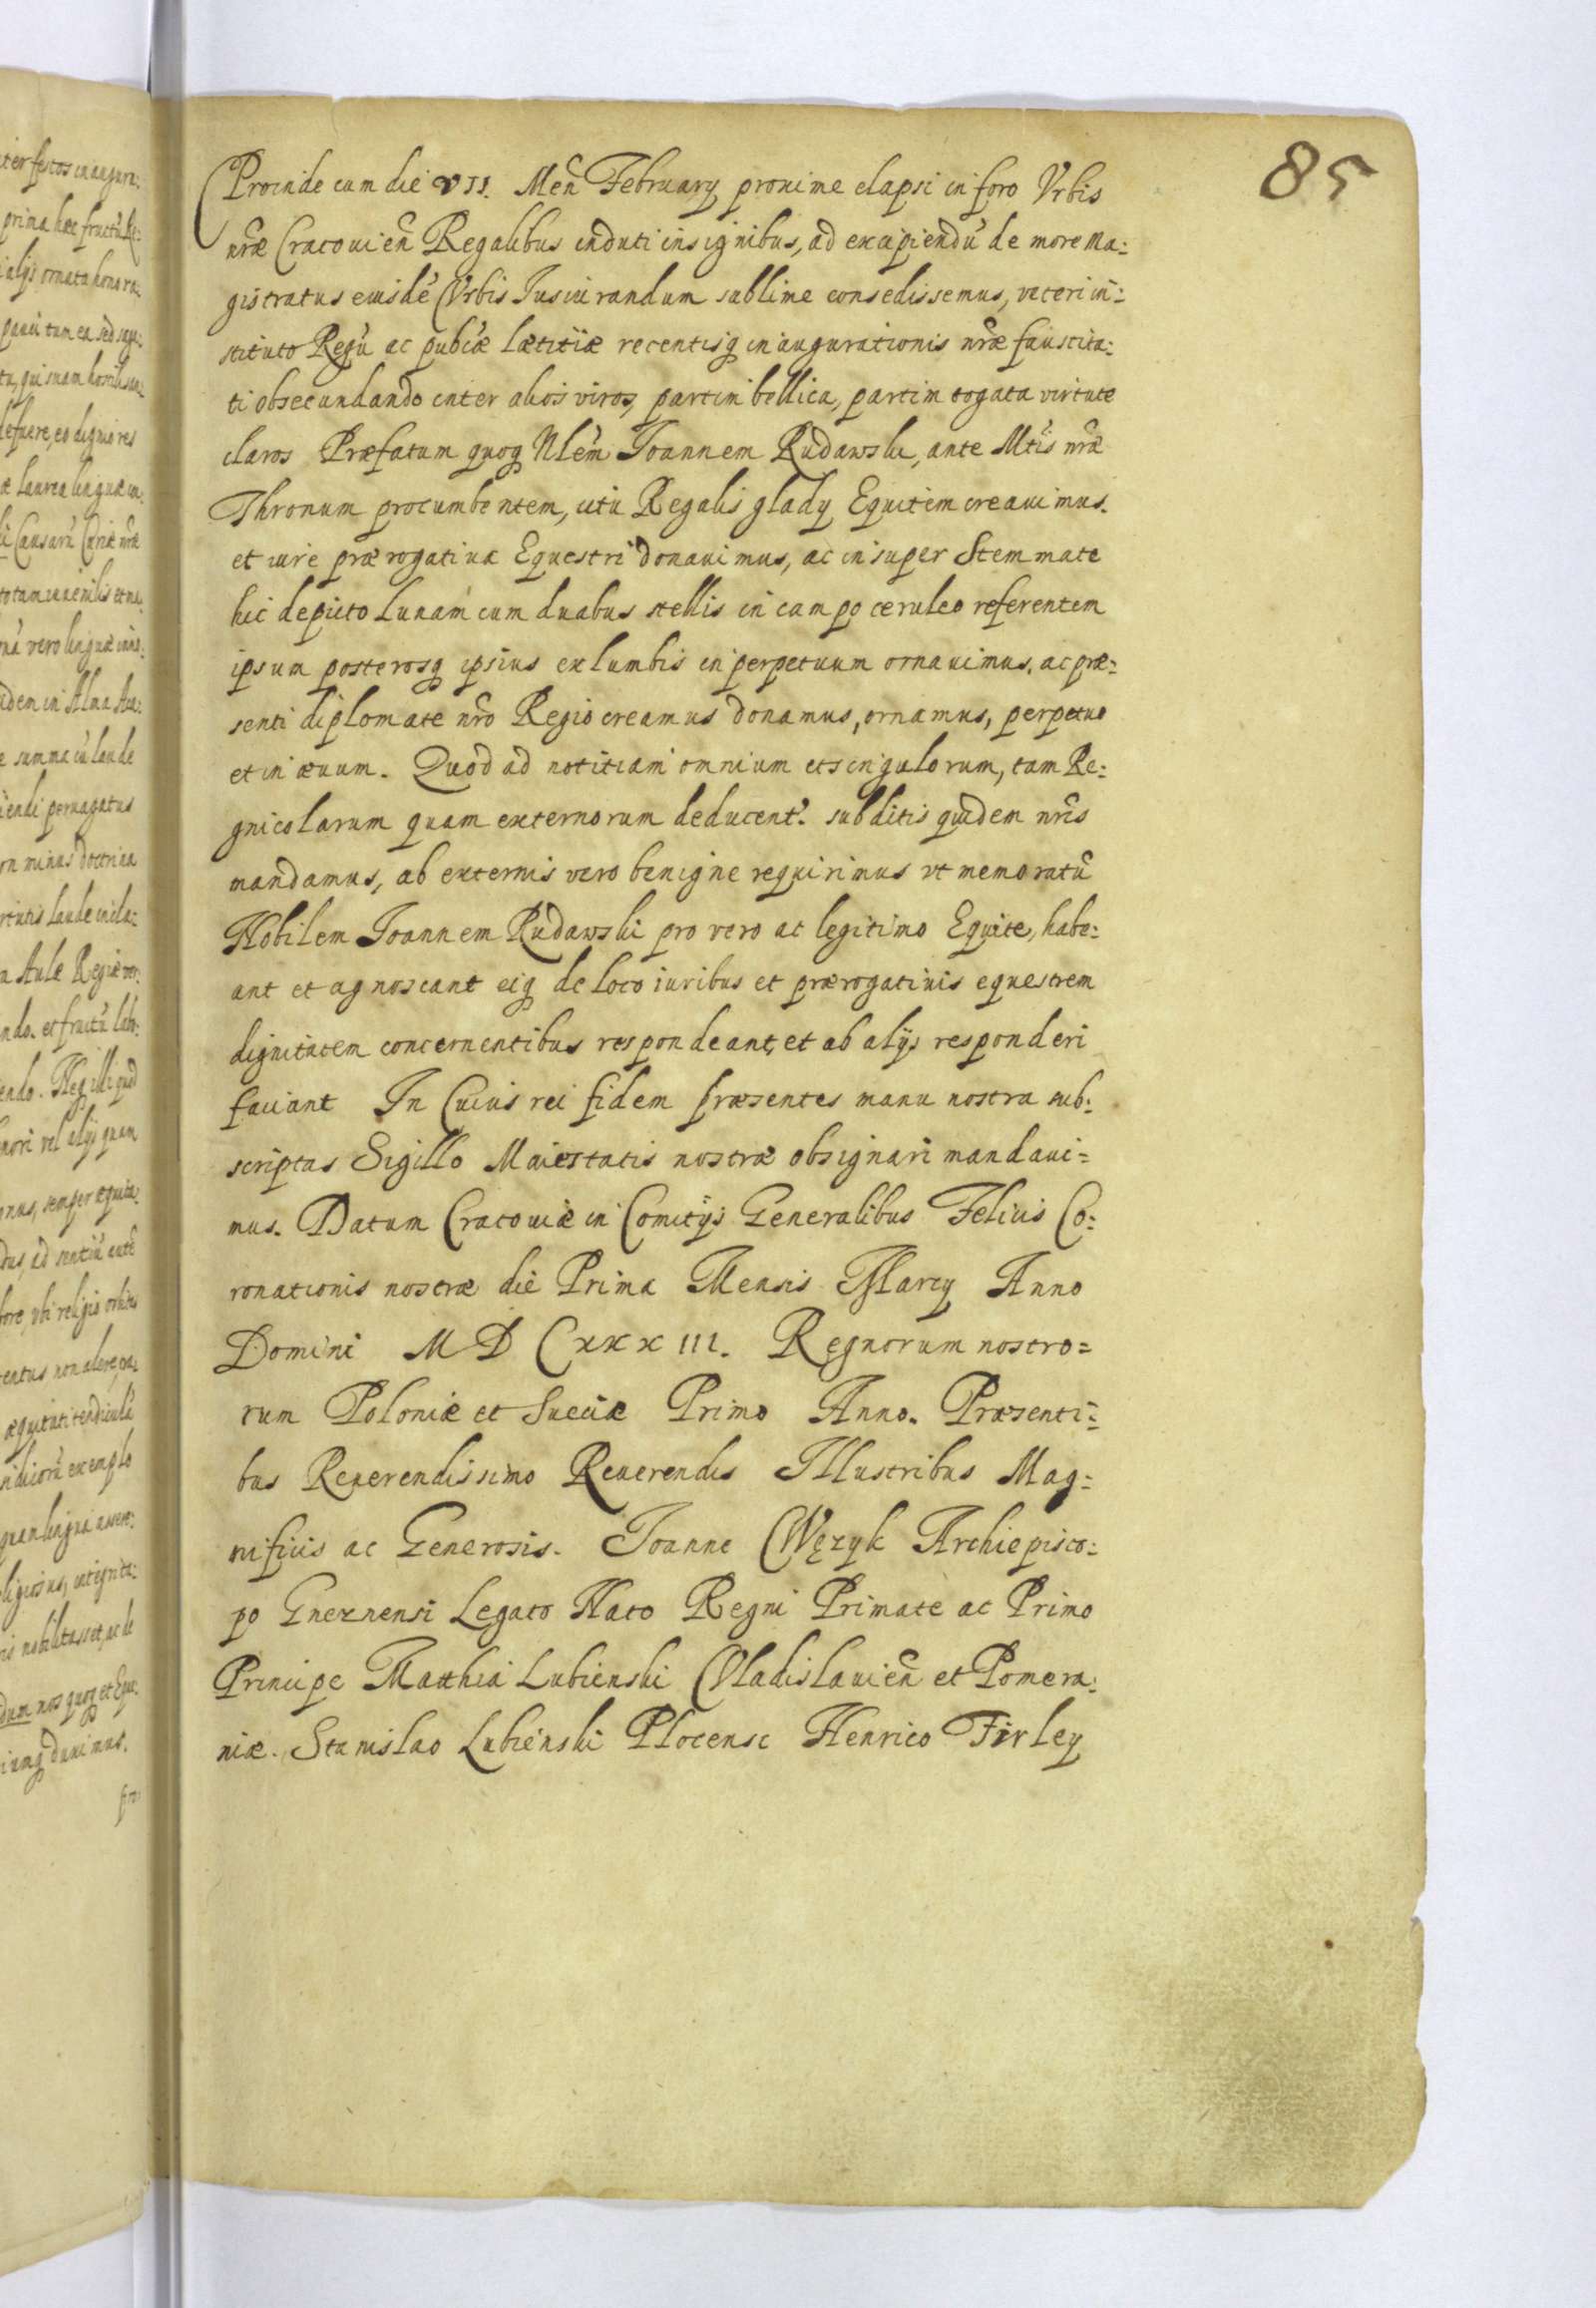 85
Proinde cum die VII. Men̄ February proxime elapsi in foro Vrbis
nr̄æ Cracouien̄ Regalibus induti insignibus, ad excipiendū de more Ma:
gistratus eiusdē Vrbis Iusiurandum sublime consedissemus, veteri in:
stituto Regū ac pubc̄æ lætitiæ recentisq inaugurationis nr̄æ faustita:
ti obsecundando inter alios viros, partim bellica, partim togata virtute
claros Præfatum quoq Nlēm Ioannem Rudawski, ante Mtīs nr̄æ
Thronum procumbentem, ictu Regalis glady Equitem creauimus.
et iure prærogatiuæ Equestri donauimus, ac insuper Stemmate
hic depicto Lunam cum duabus stellis in campo ceruleo referentem
ipsum posterosq ipsius ex lumbis in perpetuum ornauimus. ac præ:
senti diplomate nr̄o Regio creamus donamus, ornamus, perpetuo
et in æuum. Quod ad notitiam omnium et singulorum, tam Re:
gnicolarum quam externorum deducent'. subditis quidem nr̄is
mandamus, ab externis vero benigne requirimus vt memoratū
Nobilem Ioannem Rudawski pro vero ac legitimo Equite, habe:
ant et agnoscant eiq de loco iuribus et prærogatiuis equestrem
dignitatem concernentibus respondeant, et ab alijs responderi
faciant In Cuius rei fidem præsentes manu nostra sub:
scriptas Sigillo Maiestatis nostræ obsignari mandaui=
mus. Datum Cracouiæ in Comitijs Generalibus Felicis Co:
ronationis nostræ die Prima Mensis Marty Anno
Domini M D CXXXIII. Regnorum nostro=
rum Poloniæ et Sueciæ Primo Anno. Præsenti=
bus Reuerendissimo Reuerendis Illustribus Mag=
nificis ac Generosis. Ioanne Wężyk Archiepisco:
po Gneznensi Legato Nato Regni Primate ac Primo
Principe Matthia Lubienski Vladislauien̄ et Pomera:
niæ. Stanislao Lubienski Plocense Henrico Firley